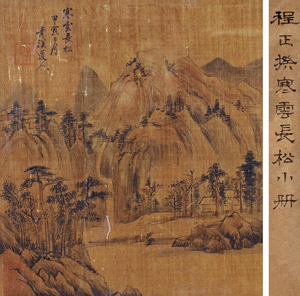 寒雲長松
甲寅夏月
青溪道人
程正揆寒雲長松小冊